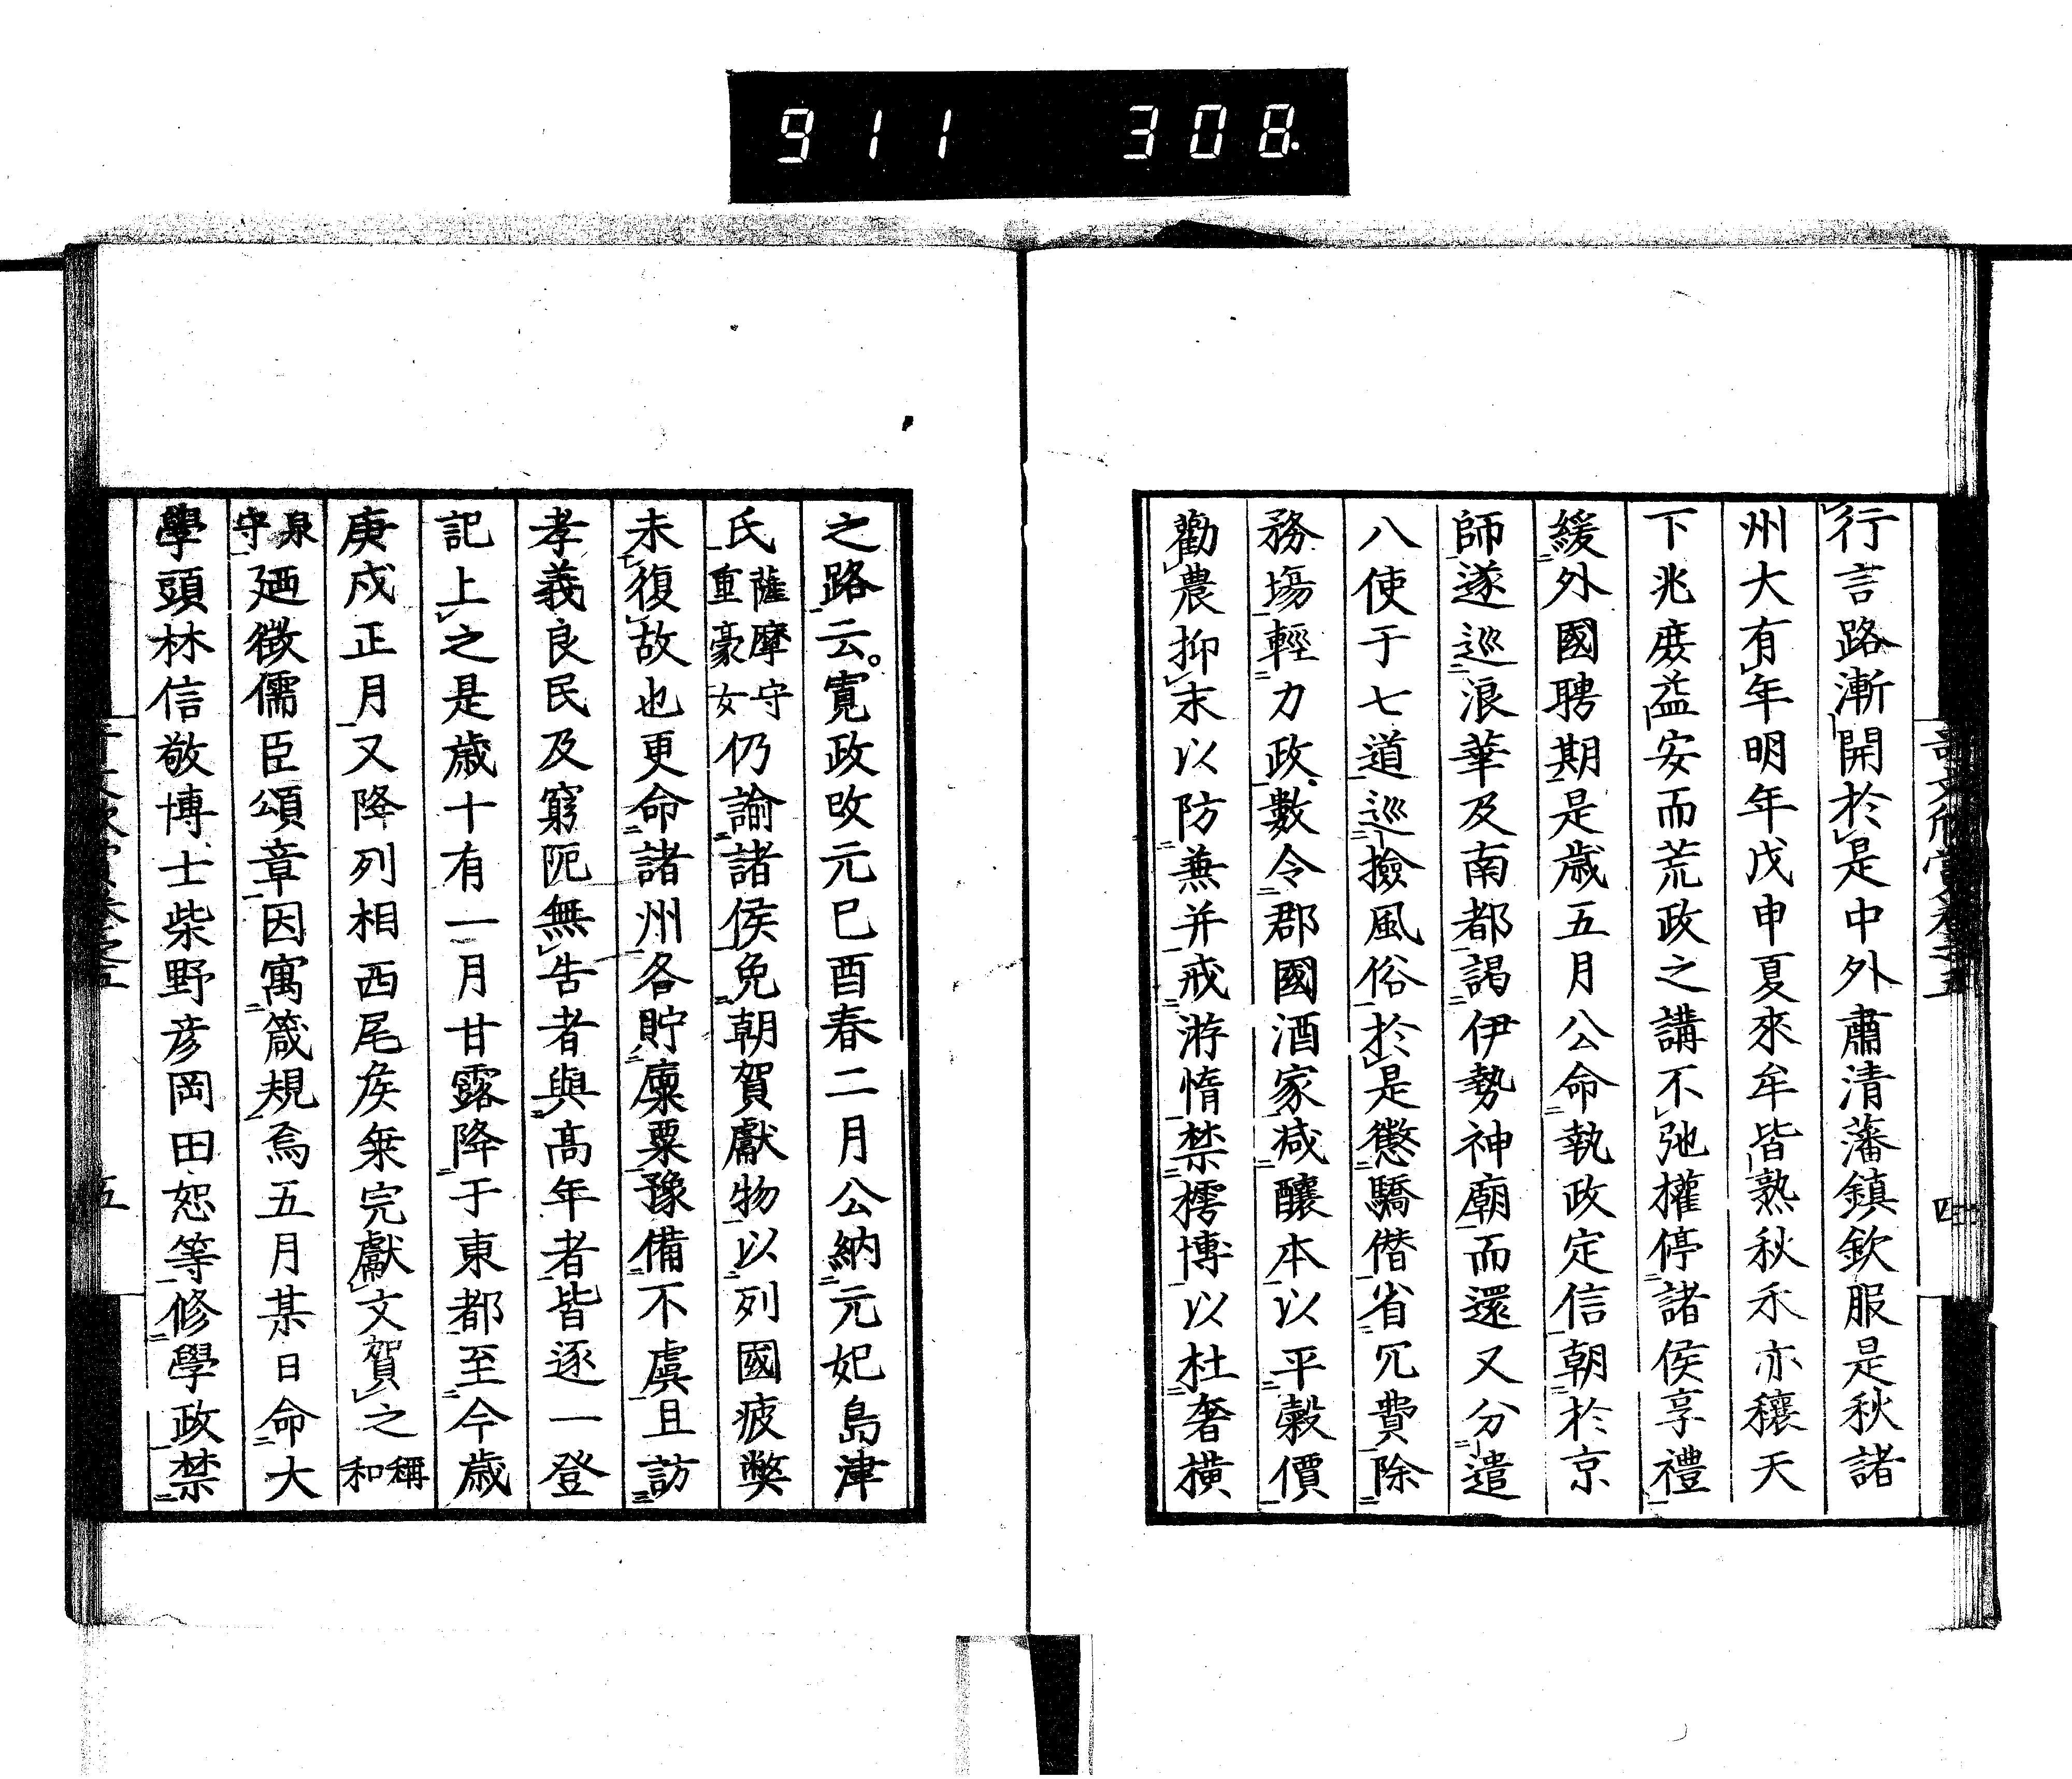 911 308.
行言路漸開於是中外肅清藩鎮欽服是秋諸
州大有年明年戊申夏來牟皆熟秋禾亦穰天
下兆庶益安而荒政之講不弛權停諸侯享禮
緩外國聘期是歲五月公命執政定信朝於京
師遂巡浪華及南都謁伊勢神廟而還又分遣
八使于七道巡撿風俗於是懲驕僭省冗費除
務塲輕力政數令郡國酒家減釀本以平穀價
勸農抑末以防兼并戒游惰禁樗博以杜奢橫
之路云。寬政改元己酉春二月公納元妃島津
氏薩摩守重豪女仍諭諸侯免朝賀獻物以列國疲獘
未復故也更命諸州各貯廩粟豫備不虞且訪
孝義良民及窮阨無告者與高年者皆逐一登
記上之是歲十有一月甘露降于東都至今歲
庚戌正月又降列相西尾矦乗完獻文賀之稱和
泉守廼徵儒臣頌章因寓箴規焉五月某日命大
學頭林信敬博士柴野彥岡田恕等修學政禁
四
五